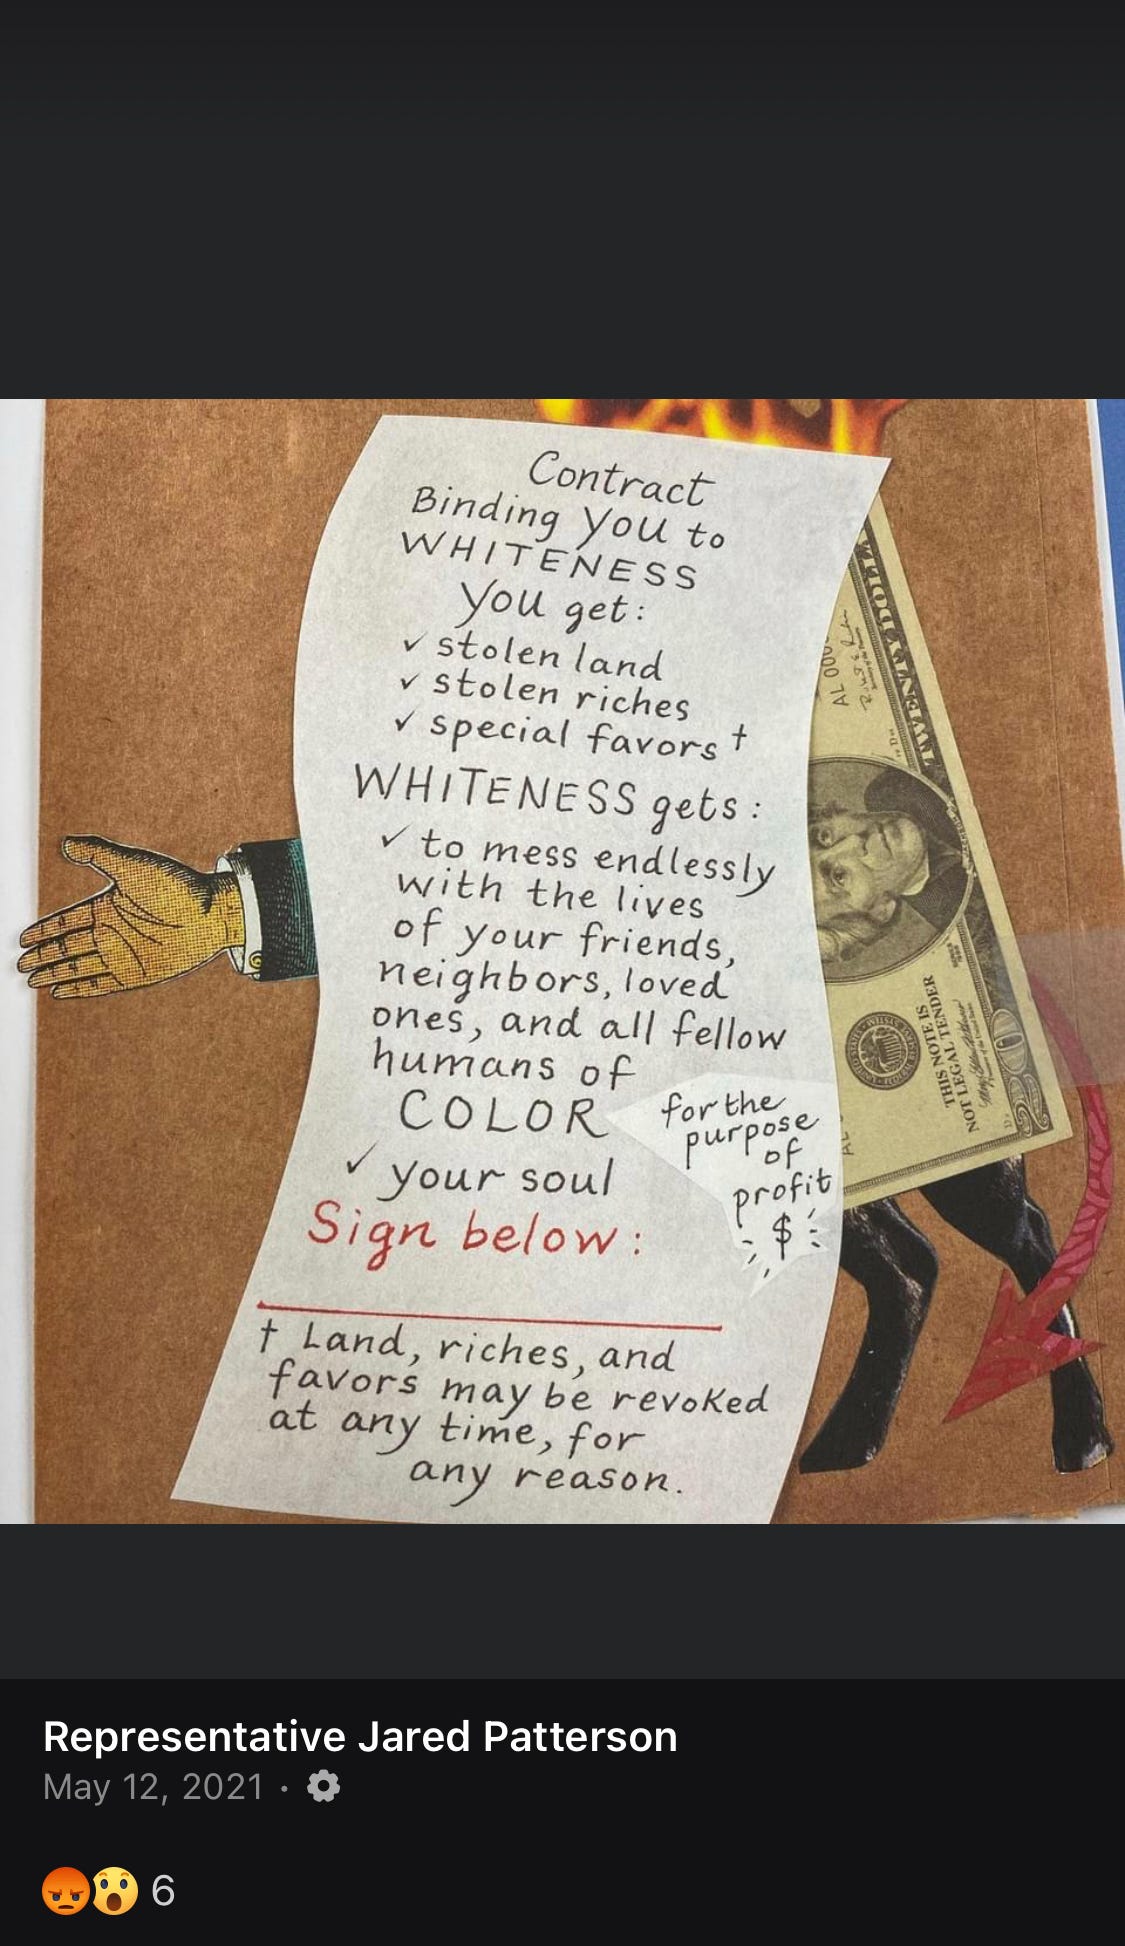 Contract
Binding you to
WHITENESS
you get:
✓ stolen land
✓ stolen riches
✓ special favors †
WHITENESS gets:
✓ to mess endlessly
with the lives
of your friends,
neighbors, loved
ones, and all fellow
humans of
COLOR
for the
purpose
of
profit
$
✓ your soul
Sign below:
† Land, riches, and
favors may be revoked
at any time, for
any reason.
THIS NOTE IS
NOT LEGAL TENDER
20
Representative Jared Patterson
May 12, 2021 ·
6